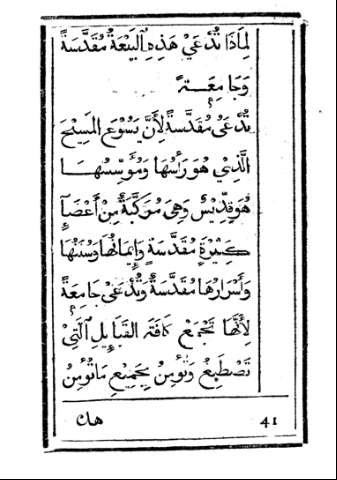 لِمَاذَا تُدْعَيْ هَذِهِ البَيْعَةُ مُقَدَّسَةً
وَجَامِعَـةً
تُدْعَيْ مُقَدَّسَةً لِأَنَّ يَسُوْعَ المَسِيْحَ
الَّذِيْ هُوَ رَأْسُهَا وَمُؤَسِّسُهَـا
هُوَ قِدِّيْسٌ وَهِيَ مُرَكَّبَةٌ مِنْ أَعْضَاءٍ
كَثِيْرَةٍ مُقَدَّسَةٍ وَإِيمَانُهَا وَسُنَنُهَا
وَأَسْرَارُهَا مُقَدَّسَةٌ وَتُدْعَيْ جَامِعَةً
لِأَنَّهَا تَجْمَعُ كَافَةَ القَبَايِلِ الَّتِيْ
تَصْطَبِغُ وَتُؤْمِنُ بِجَمِيْعِ مَا تُؤْمِنُ
41 هك